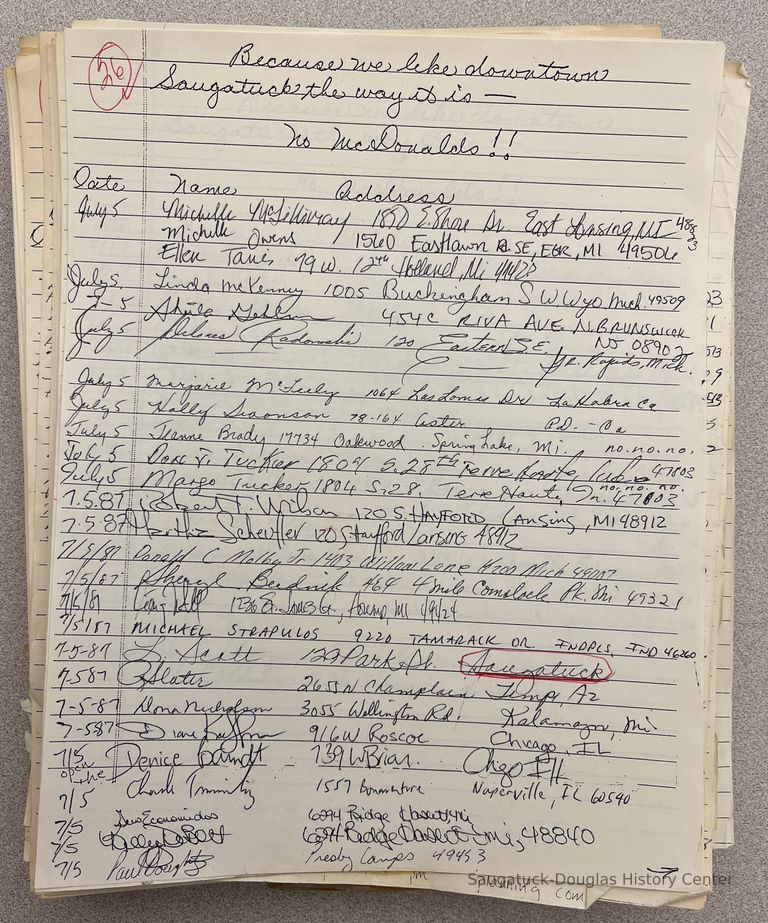 56
Because we like downtown
Saugatuck the way it is —
No McDonalds!!
Date Name Address
July 5 Michelle McGillivray E. Shore Dr. East Lansing, MI
Michelle Owens 1560 Eastlawn Rd. SE, EGR, MI 49506
Ellen 79 W. 12th Holland, Mi
July 5, Linda McKenney 1005 Buckingham SW Wyo Mich. 49509
7-5 Sheila 454 C RIVA AVE. N. BRUNSWICK
NJ 08902
July 5 Delores Radomski 120 Eastern S.E. Gr. Rapids, Mich.
July 5 Margarie 1064 Las Lomas Dr La Habra Ca
July 5 Holly Swanson 78-164 Cortez P.D. - Ca
July 5 Jeanne Brady 17734 Oakwood Spring Lake, Mi. no. no. no.
July 5 Don J. Tucker 1804 S. 28th Terre Haute, 47803
no. no. no.
July 5 Margo Tucker 1804 S. 28. Terre Haute, In. 47803
7.5.87 Robert T. 120 S. HAYFORD LANSING, MI 48912
7.5.87 Martha Scheffler 120 S Hayford Lansing 48912
7/5/87 Donald C Molby Jr 1403 Willow Lane Mich
7/5/87 Sheryl Budnik 464 4 mile Comstock Pk. Mi 49321
7/5/87 Craig MI
7/5/87 MICHAEL STRAPULOS 9220 TAMARACK DR. INDPLS, IND 46260
7-5-87 L. Scott 129 Park St. Saugatuck
7-5 87 Slater 2655 N Champlain Tempe, Az
7-5-87 Dona Nicholson 3055 Wellington Rd. Kalamazoo, Mi.
7-5 87 Diane 916 W Roscoe Chicago, IL
7/5 Denice Barndt 739 W Briar Chgo Ill
open
the
7/5 Charles 1557 Bonaventure Naperville, IL 60540
7/5 Economidos 6294 Ridge
7/5 Kelly 6294 Ridge Mi, 48840
7/5 Paul Presby Camps 49453
Saugatuck-Douglas History Center